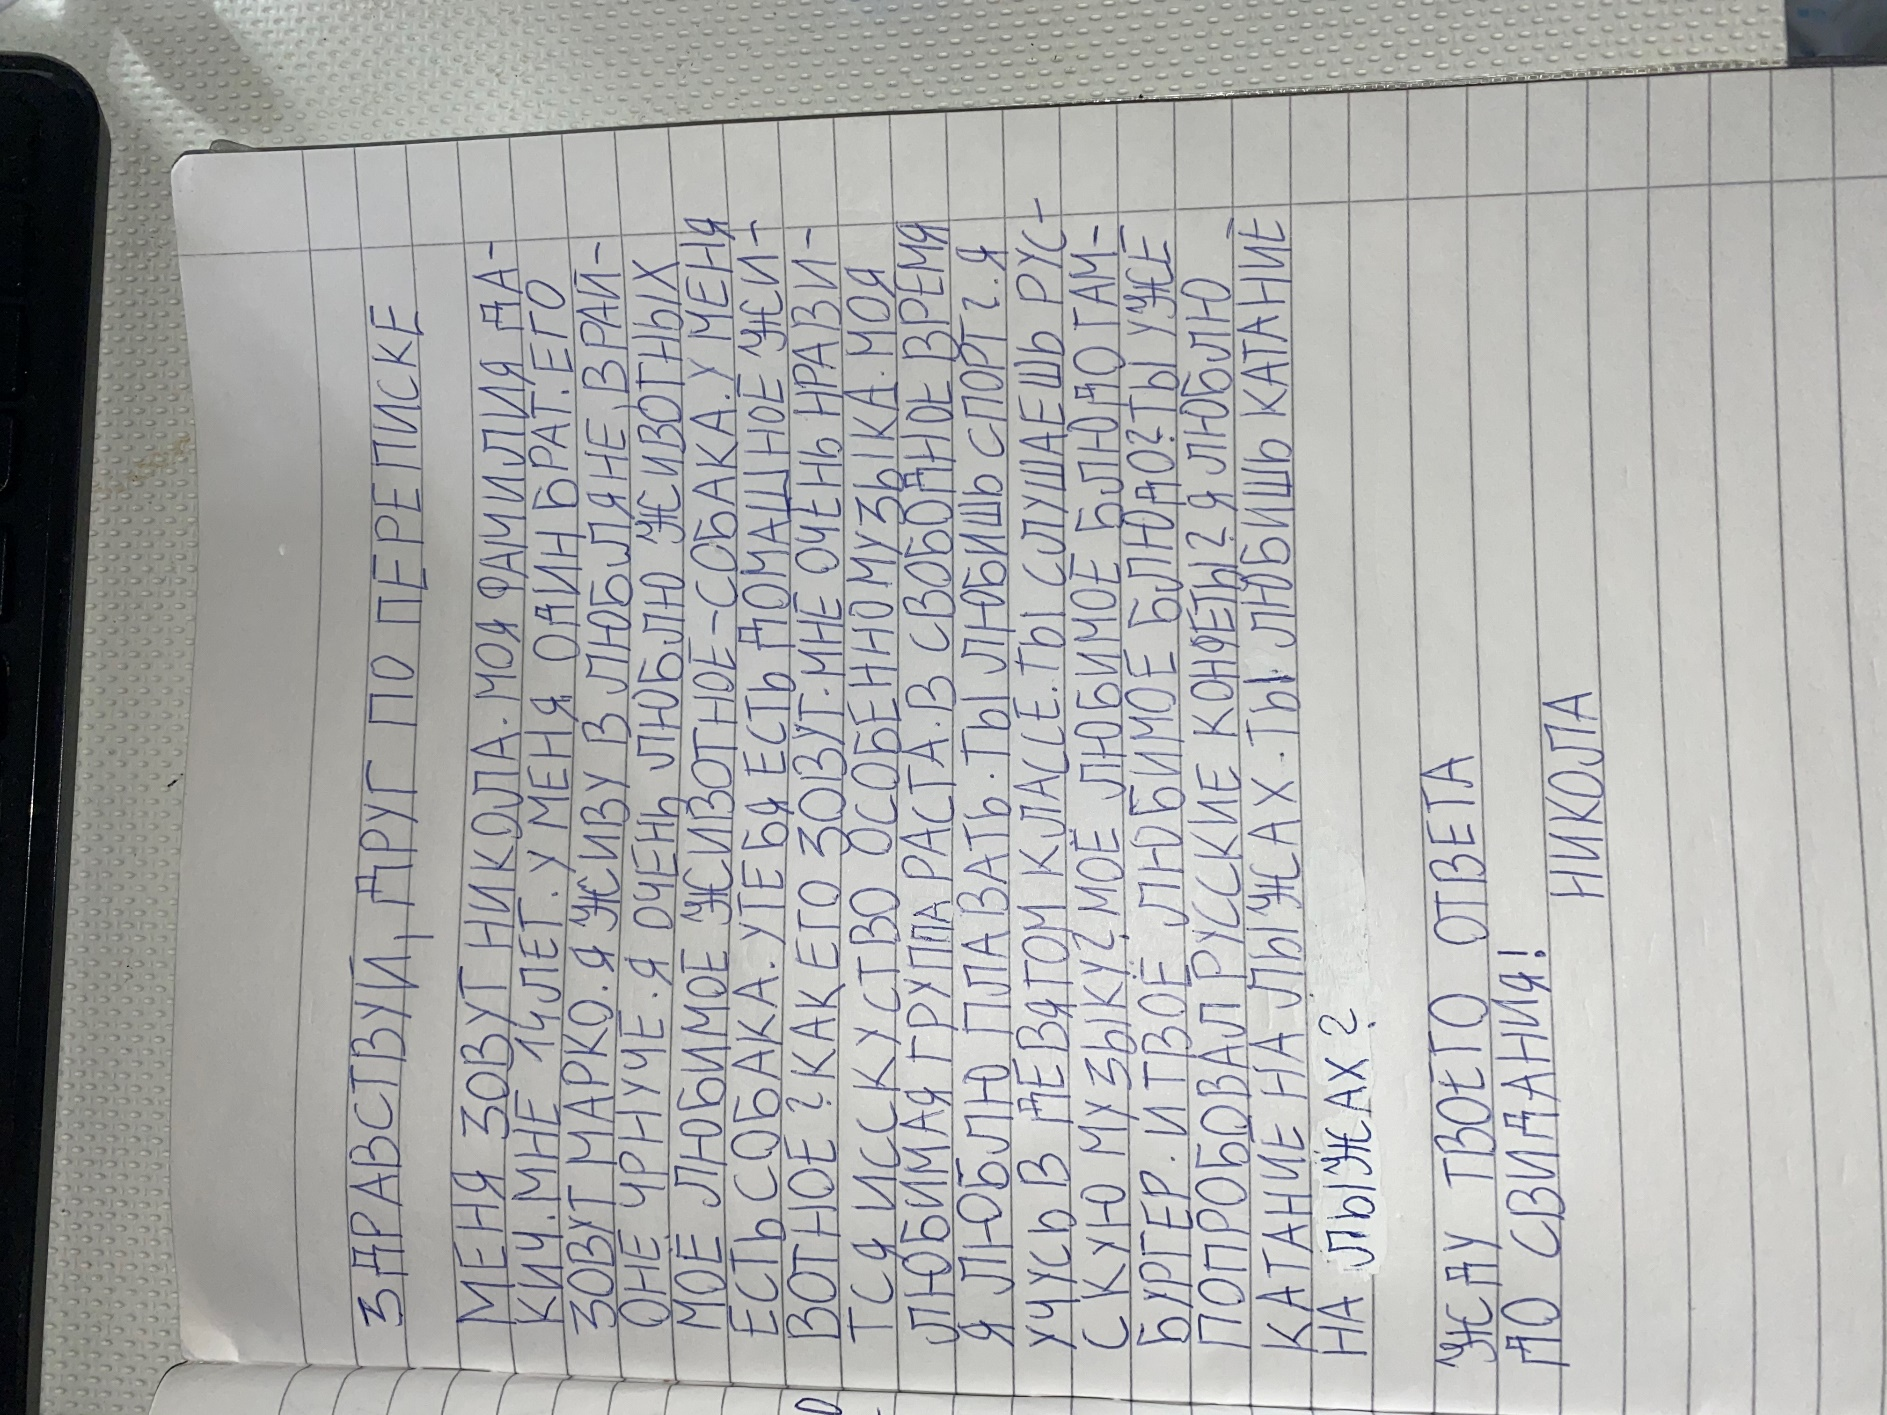 ЗДРАВСТВУЙ, ДРУГ ПО ПЕРЕПИСКЕ
МЕНЯ ЗОВУТ НИКОЛА. МОЯ ФАМИЛИЯ ДА-
КИЧ. МНЕ 14 ЛЕТ. У МЕНЯ ОДИН БРАТ. ЕГО
ЗОВУТ МАРКО. Я ЖИВУ В ЛЮБЛЯНЕ. В РАЙ-
ОНЕ ЧРНУЧЕ. Я ОЧЕНЬ ЛЮБЛЮ ЖИВОТНЫХ
МОЁ ЛЮБИМОЕ ЖИВОТНОЕ-СОБАКА. У МЕНЯ
ЕСТЬ СОБАКА. У ТЕБЯ ЕСТЬ ДОМАШНОЕ ЖИ-
ВОТНОЕ? КАК ЕГО ЗОВУТ. МНЕ ОЧЕНЬ НРАВИ-
ТСЯ ИССКУСТВО ОСОБЕННО МУЗЫКА. МОЯ
ЛЮБИМАЯ ГРУППА РАСТА. В СВОБОДНОЕ ВРЕМЯ
Я ЛЮБЛЮ ПЛАВАТЬ. ТЫ ЛЮБИШЬ СПОРТ?. Я
УЧУСЬ В ДЕВЯТОМ КЛАССЕ. ТЫ СЛУШАЕШЬ РУС-
СКУЮ МУЗЫКУ? МОЁ ЛЮБИМОЕ БЛЮДО ГАМ-
БУРГЕР. И ТВОЁ ЛЮБИМОЕ БЛЮДО? ТЫ УЖЕ
ПОПРОБОВАЛ РУССКИЕ КОНФЕТЫ? Я ЛЮБЛЮ
КАТАНИЕ НА ЛЫЖАХ. ТЫ ЛЮБИШЬ КАТАНИЕ
НА ЛЫЖАХ?
ЖДУ ТВОЕГО ОТВЕТА
ДО СВИДАНИЯ!
НИКОЛА